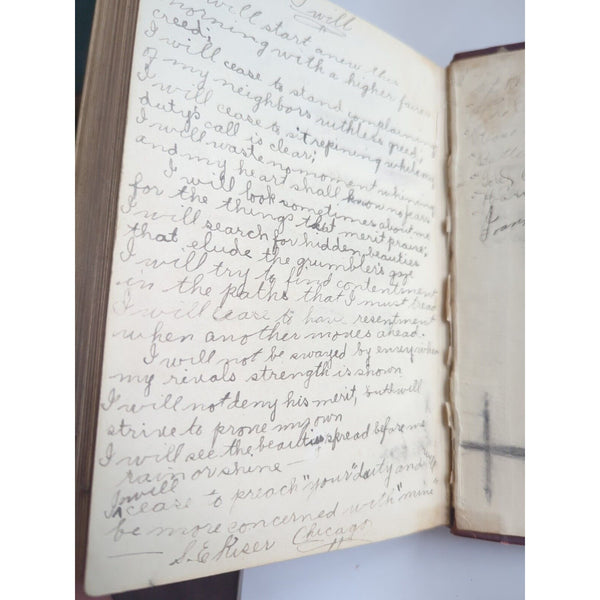 I will
I will start anew this
morning with a higher fairer
creed;
I will cease to stand complaining
of my neighbors ruthless greed;
I will cease to sit repining while my
duty's call is clear;
I will waste no moment whining
and my heart shall know no fear.
I will look sometimes about me
for the things that merit praise;
I will search for hidden beauties
that elude the grumbler's gaze
I will try to find contentment
in the paths that I must tread
I will cease to have resentment
when another moves ahead.
I will not be swayed by envy when
my rivals strength is shown
I will not deny his merit, but I will
strive to prove my own
I will see the beauties spread before me
rain or shine—
I will
cease to preach "your" duty and
be more concerned with "mine"
— S. E. Kiser Chicago